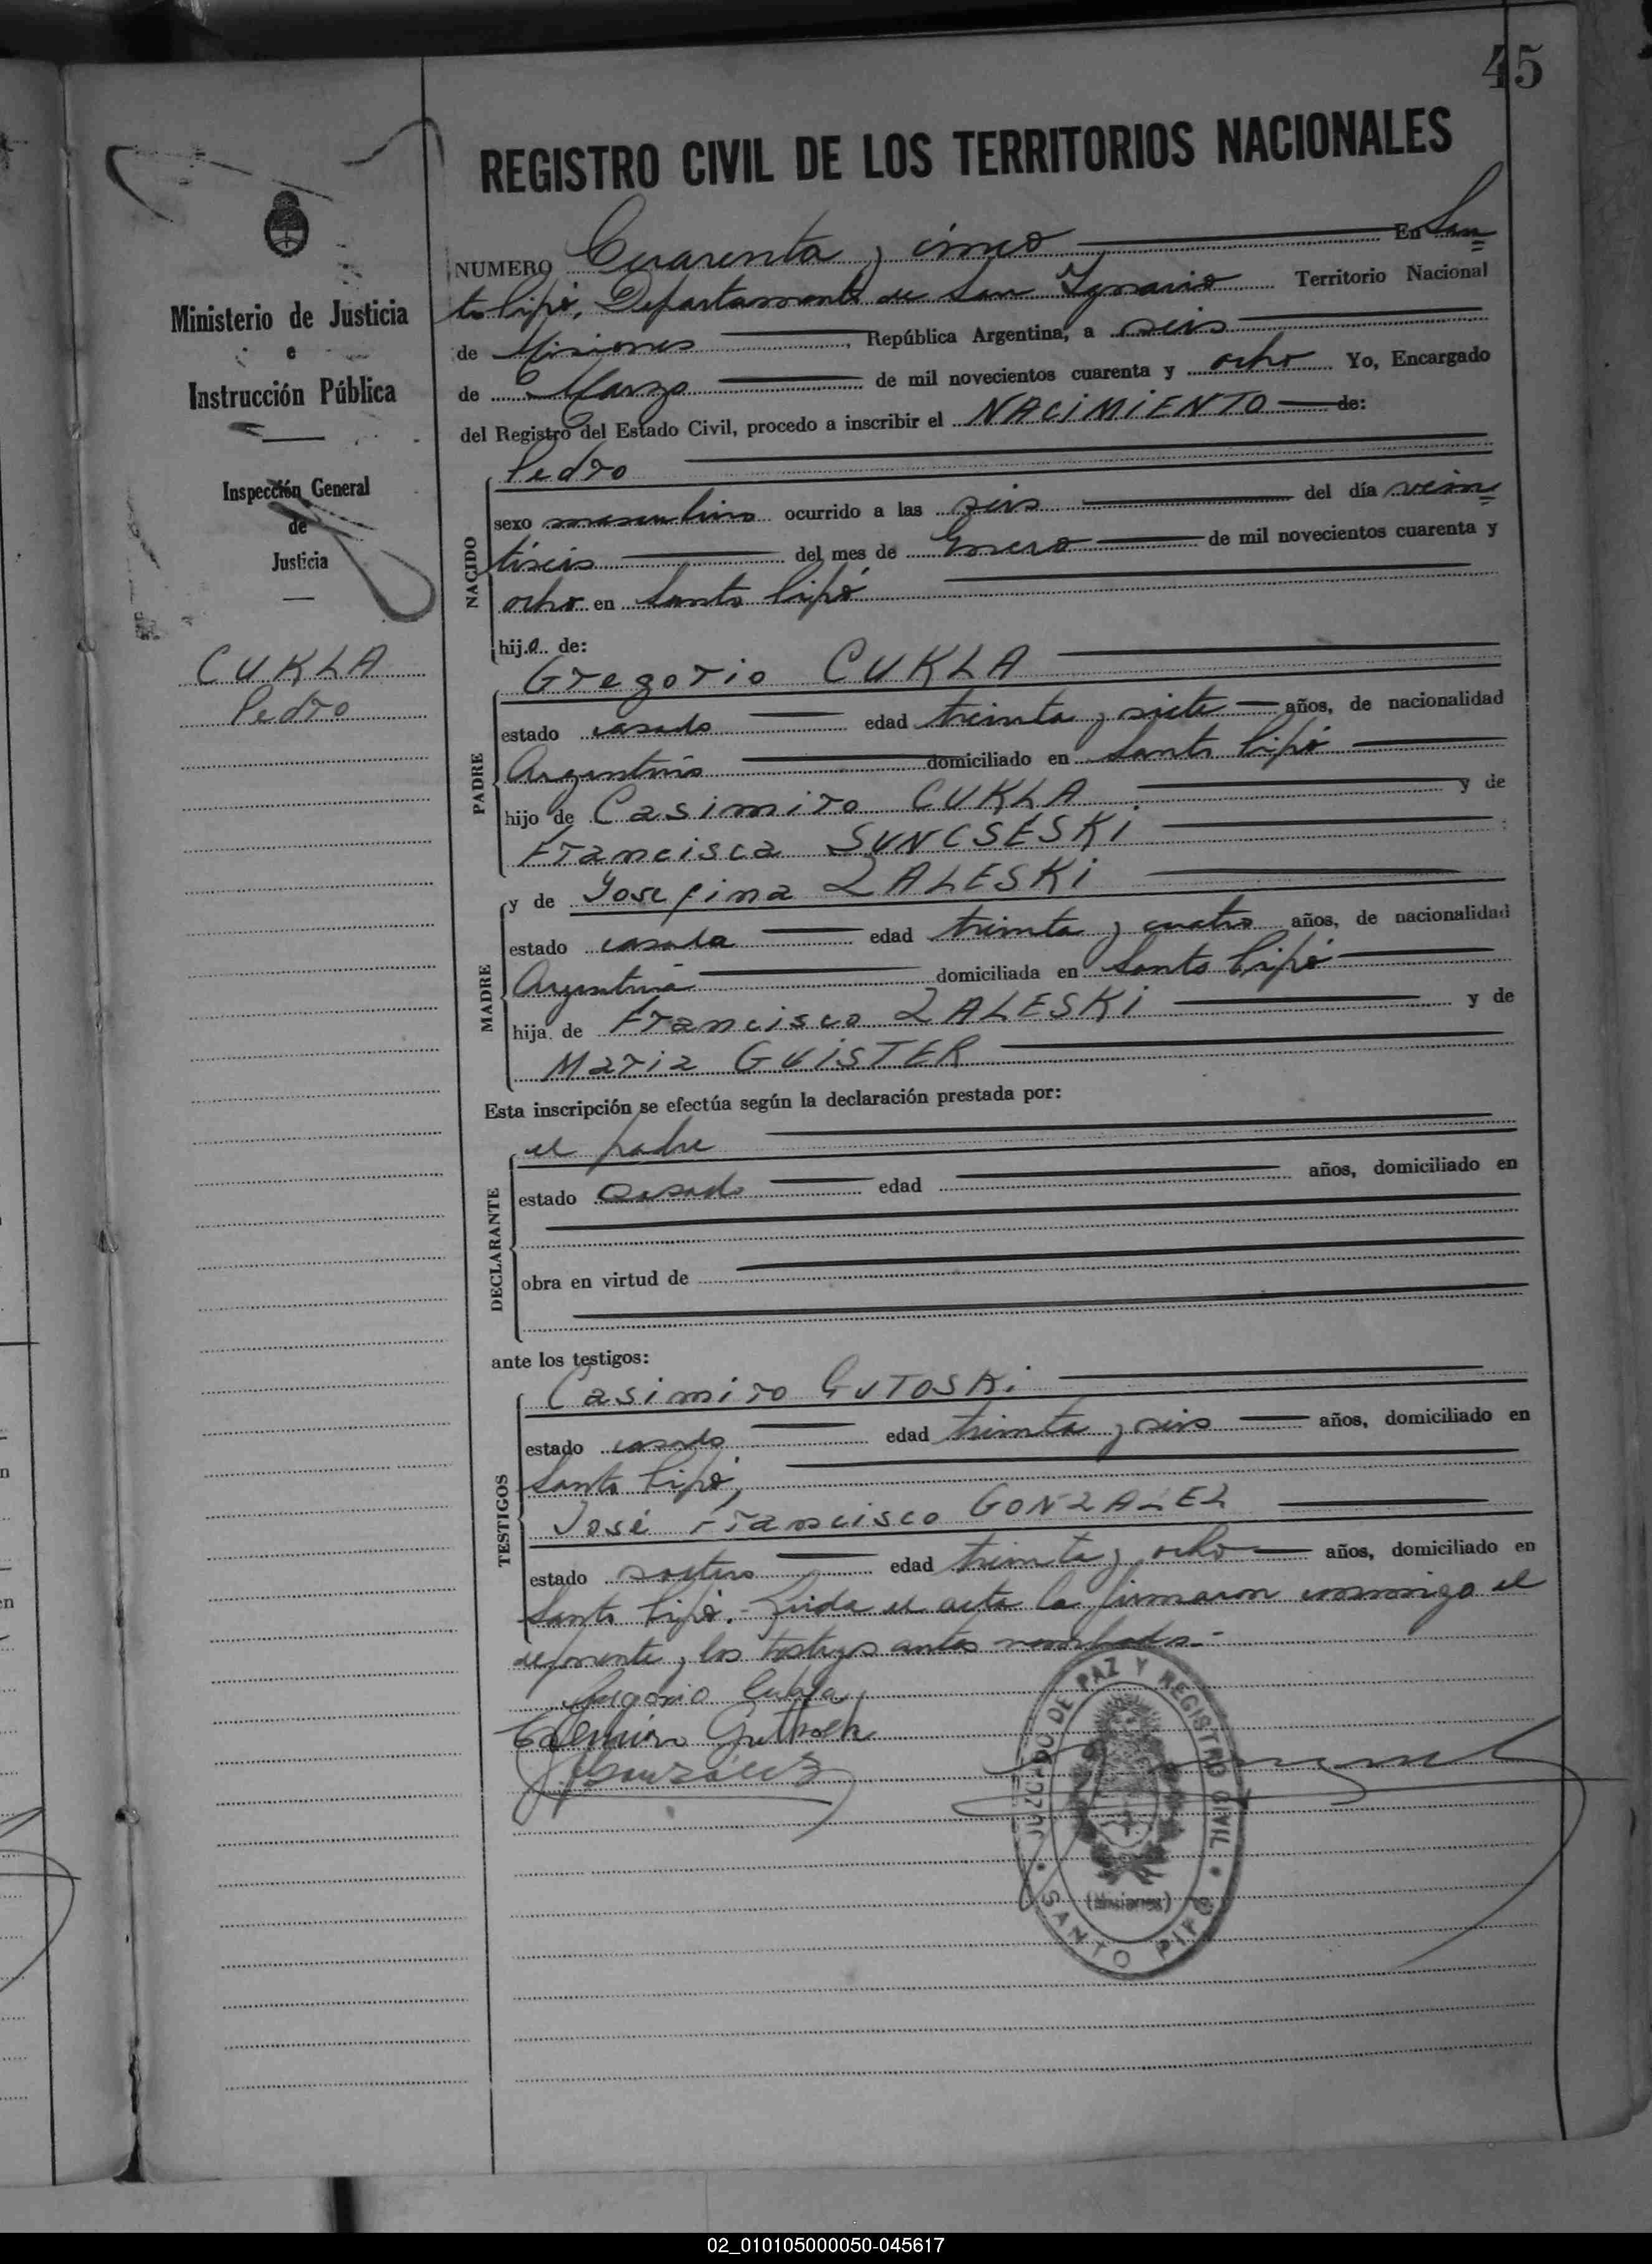 45
REGISTRO CIVIL DE LOS TERRITORIOS NACIONALES
Ministerio de Justicia
e
Instrucción Pública
Inspección General
de
Justicia
CUKLA
Pedro
NUMERO Cuarenta y cinco En San=
to Pipó, Departamento de San Ignacio Territorio Nacional
de Misiones, República Argentina, a seis
de Marzo de mil novecientos cuarenta y ocho Yo, Encargado
del Registro del Estado Civil, procedo a inscribir el NACIMIENTO de:
NACIDO
Pedro
sexo masculino ocurrido a las seis del día vein=
tiseis del mes de Enero de mil novecientos cuarenta y
ocho en Santo Pipó
hijo de:
PADRE
Gregorio CUKLA
estado casado edad treinta y siete años, de nacionalidad
Argentino domiciliado en Santo Pipó
hijo de Casimiro CUKLA y de
Francisca SUNCSESKI
MADRE
y de Josefina ZALESKI
estado casada edad treinta y cuatro años, de nacionalidad
Argentina domiciliada en Santo Pipó
hija de Francisco ZALESKI y de
Maria GUISTER
Esta inscripción se efectúa según la declaración prestada por:
DECLARANTE
el padre
estado casado edad años, domiciliado en
obra en virtud de
ante los testigos:
TESTIGOS
Casimiro GUTOSKI
estado casado edad treinta y seis años, domiciliado en
Santo Pipó,
José Francisco GONZALEZ
estado soltero edad treinta y ocho años, domiciliado en
Santo Pipó.- Leida el acta la firmaron conmigo el
deponente y los testigos antes nombrados.-
Gregorio Cukla
González
JUZGADO DE PAZ Y REGISTRO CIVIL
(Misiones)
SANTO PIPÓ
02_010105000050-045617